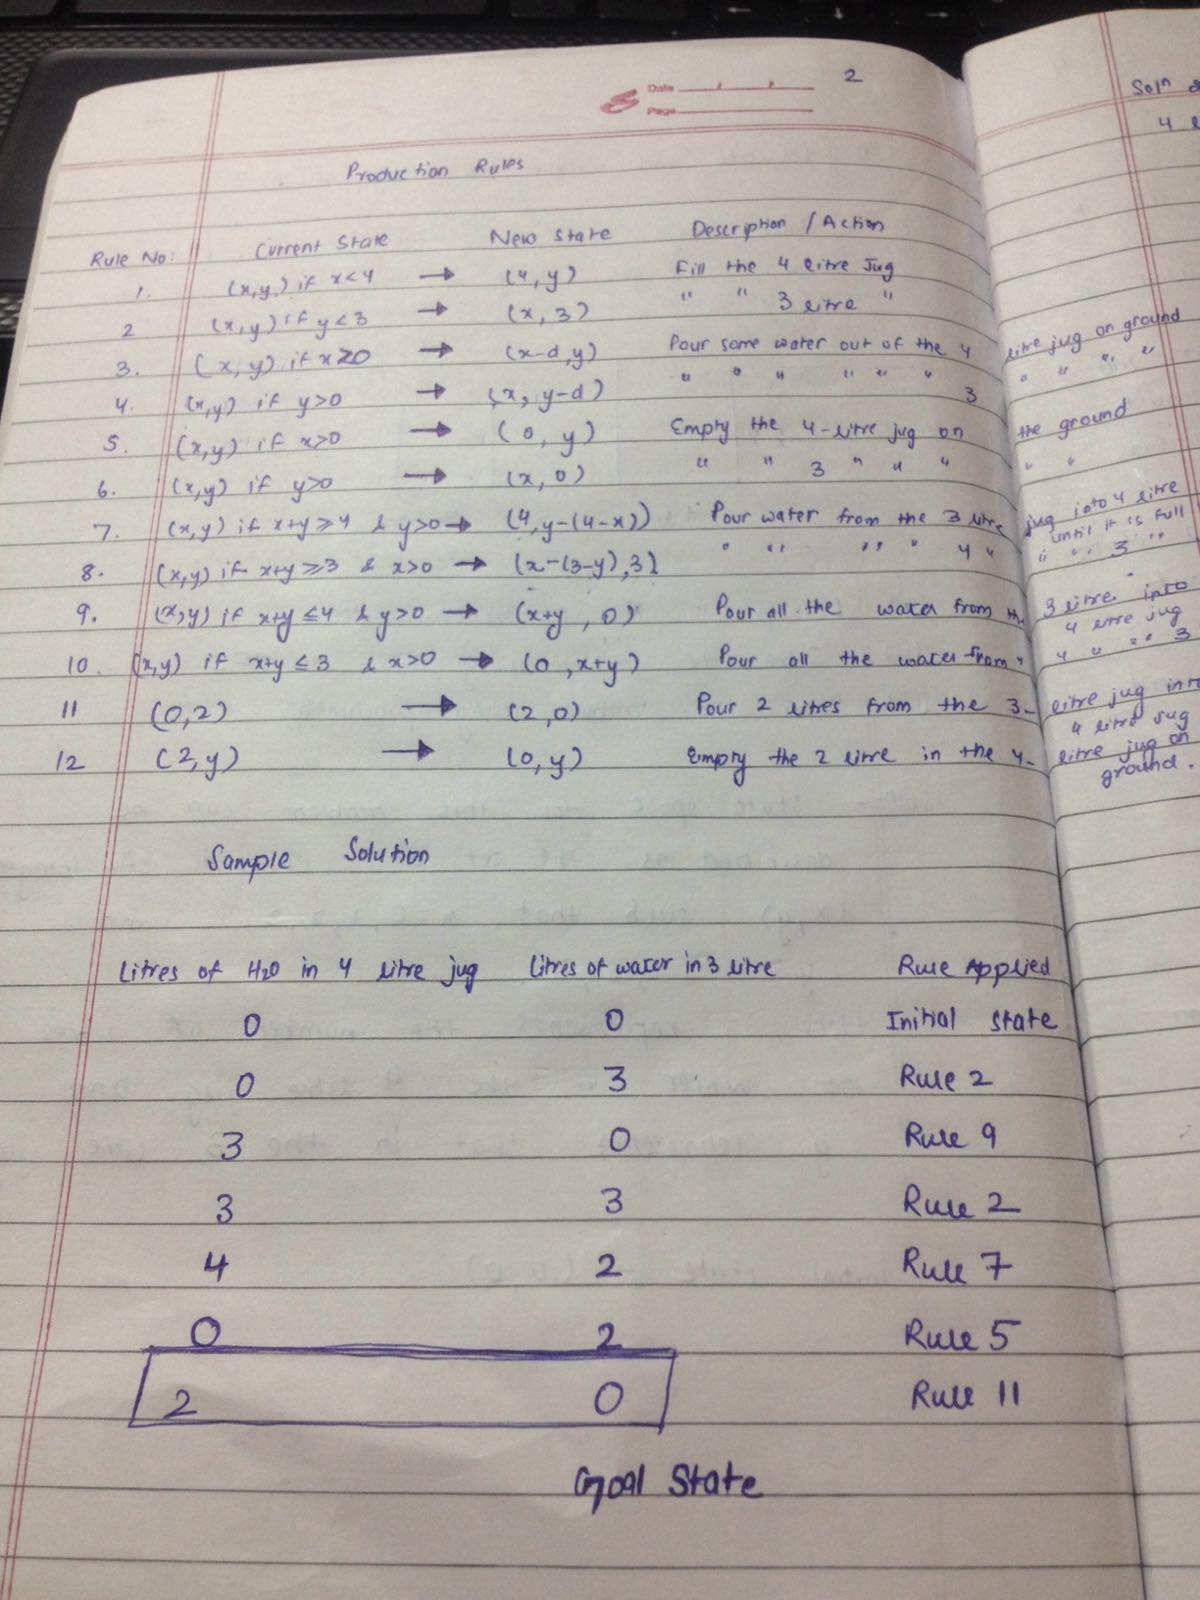 2
Date
Page
Soln
4
Production Rules
Rule No: Current State New State Description / Action
1. (x,y) if x<4 → (4,y) Fill the 4 litre Jug
2 (x,y) if y<3 → (x,3) " " 3 litre "
3. (x,y) if x≥0 → (x-d,y) Pour some water out of the 4 litre jug on ground
4. (x,y) if y>0 → (x, y-d) " " " " " " 3 " " " "
5. (x,y) if x>0 → (0, y) Empty the 4-litre jug on the ground
6. (x,y) if y>0 → (x,0) " " 3 " " " " "
7. (x,y) if x+y≥4 & y>0 → (4,y-(4-x)) Pour water from the 3 litre jug into 4 litre
until it is full
8. (x,y) if x+y≥3 & x>0 → (x-(3-y),3) " " " " 4 " " " " 3 "
9. (x,y) if x+y≤4 & y>0 → (x+y, 0) Pour all the water from the 3 litre into
4 litre jug
10. (x,y) if x+y≤3 & x>0 → (0, x+y) Pour all the water from " 4 " " " 3
11 (0,2) → (2,0) Pour 2 litres from the 3- litre jug into
4 litre jug
12 (2,y) → (0,y) Empty the 2 litre in the 4- litre jug on
ground.
Sample Solution
Litres of H2O in 4 litre jug Litres of water in 3 litre Rule Applied
0 0 Initial State
0 3 Rule 2
3 0 Rule 9
3 3 Rule 2
4 2 Rule 7
0 2 Rule 5
2 0 Rule 11
Goal State